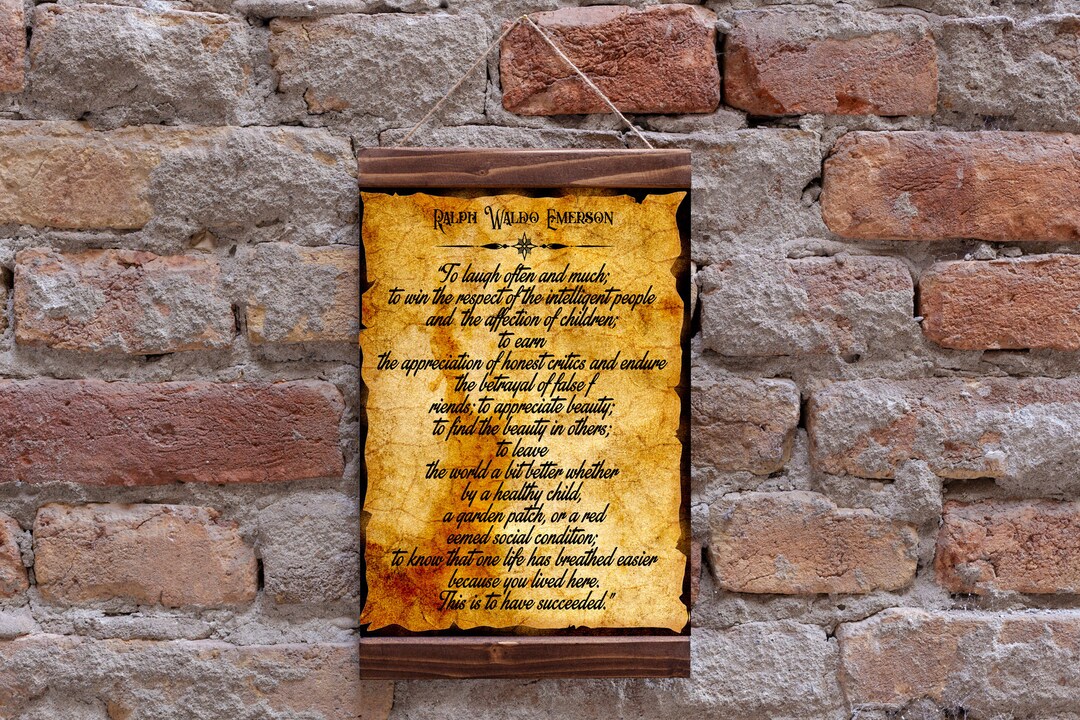 Ralph Waldo Emerson
"To laugh often and much;
to win the respect of the intelligent people
and the affection of children;
to earn
the appreciation of honest critics and endure
the betrayal of false f
riends; to appreciate beauty;
to find the beauty in others;
to leave
the world a bit better whether
by a healthy child,
a garden patch, or a red
eemed social condition;
to know that one life has breathed easier
because you lived here.
This is to have succeeded."